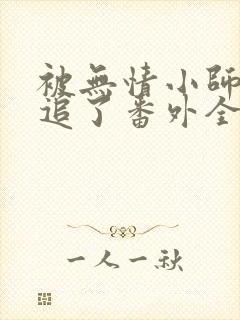 被無情小師
追了番外全
一人一秋